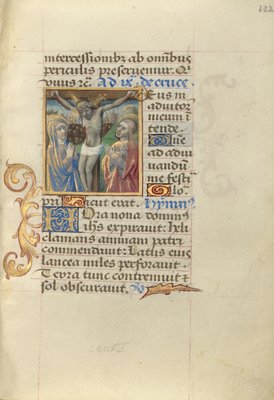 122
intercessionibz ab omnibus
periculis preservemur. Q̃
vivis rc̃. Ad ix de cruce
Deus in
adiutor
meum i
tende.
Dñe
ad adiu
vandũ
me festi
Glo
pri Sicut erat. Hymn
Hora nona domin
ihs expiravit: Heli
clamans animam patri
commendavit: Latus eius
lancea miles perforavit.
Terra tunc contremuit et
sol obscuravit.